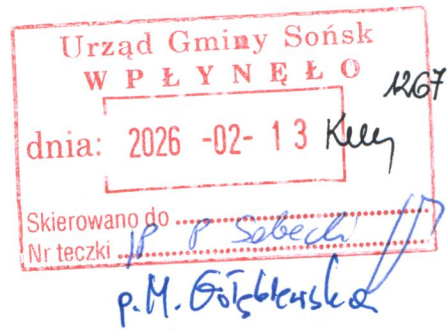 Urząd Gminy Sońsk
WPŁYNĘŁO
1267
dnia: 2026 -02- 13
Skierowano do
P Sobecki
Nr teczki
p. M. Gołębiewska